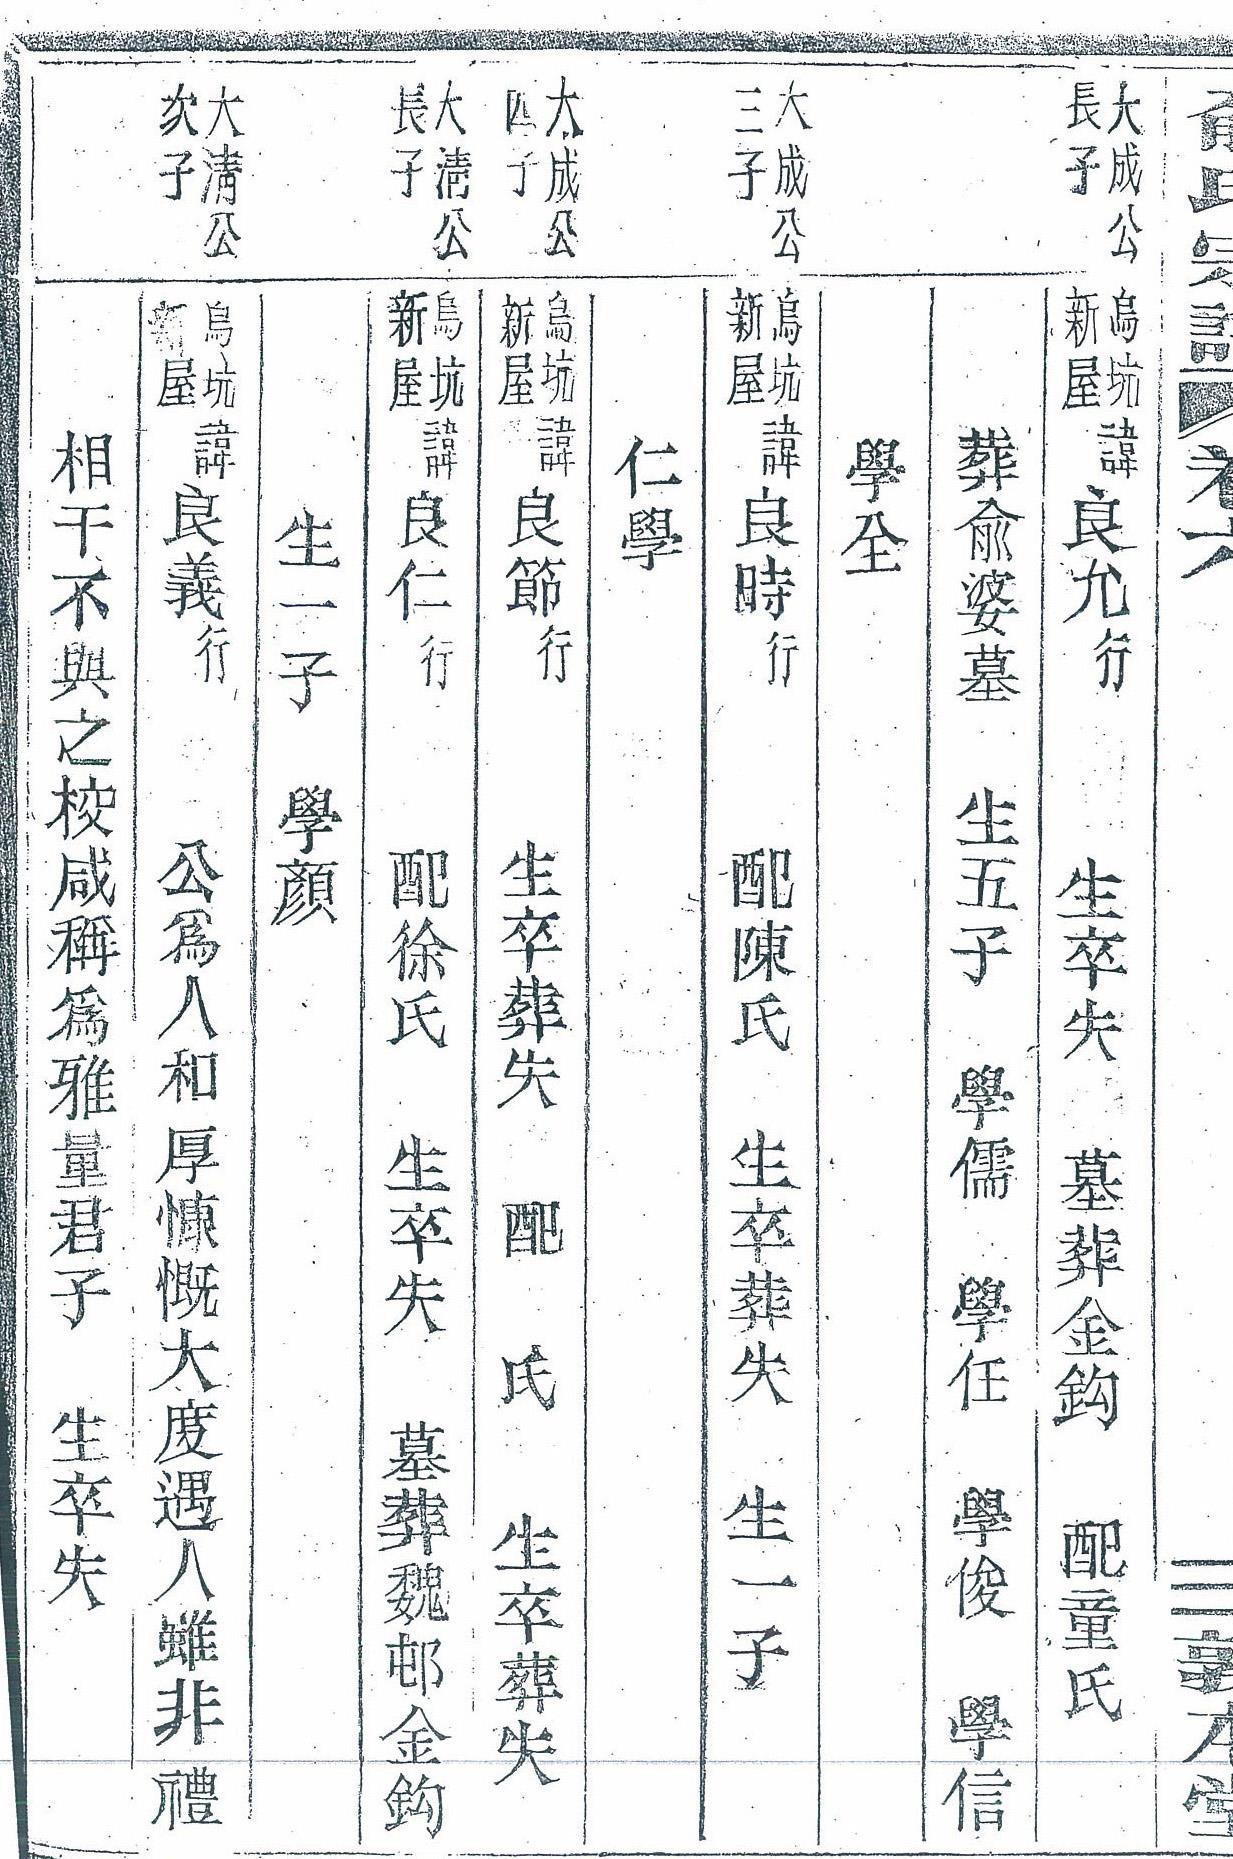 俞氏宗譜 卷六 三 敦本堂
大成公長子 烏坑新屋 諱良允行 生卒失 墓葬金鈎 配童氏
葬俞婆墓 生五子 學儒 學任 學俊 學信
學全
大成公三子 烏坑新屋 諱良時行 配陳氏 生卒葬失 生一子
仁學
大成公四子 烏坑新屋 諱良節行 生卒葬失 配 氏 生卒葬失
大清公長子 烏坑新屋 諱良仁行 配徐氏 生卒失 墓葬魏邨金鈎
生一子 學顏
大清公次子 烏坑新屋 諱良義行 公爲人和厚慷慨大度遇人雖非禮
相干不與之校咸稱爲雅量君子 生卒失